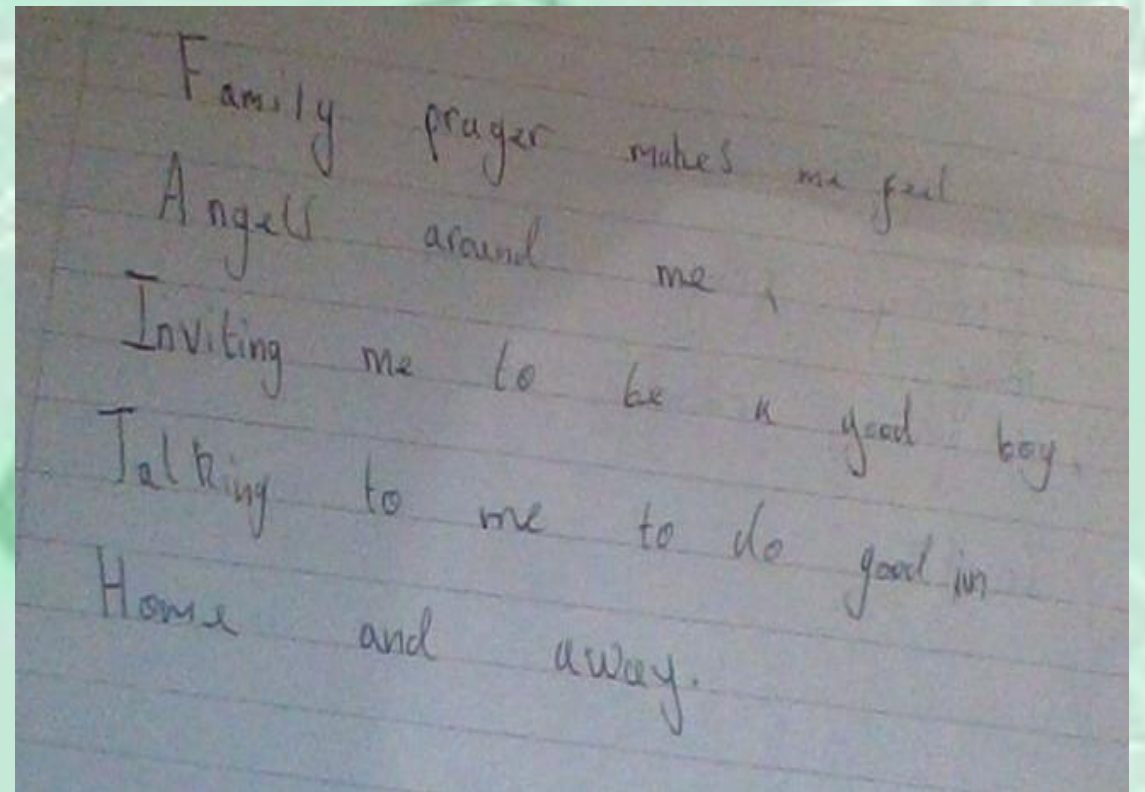 Family prayer makes me feel
Angels around me,
Inviting me to be a good boy.
Talking to me to do good in
Home and away.